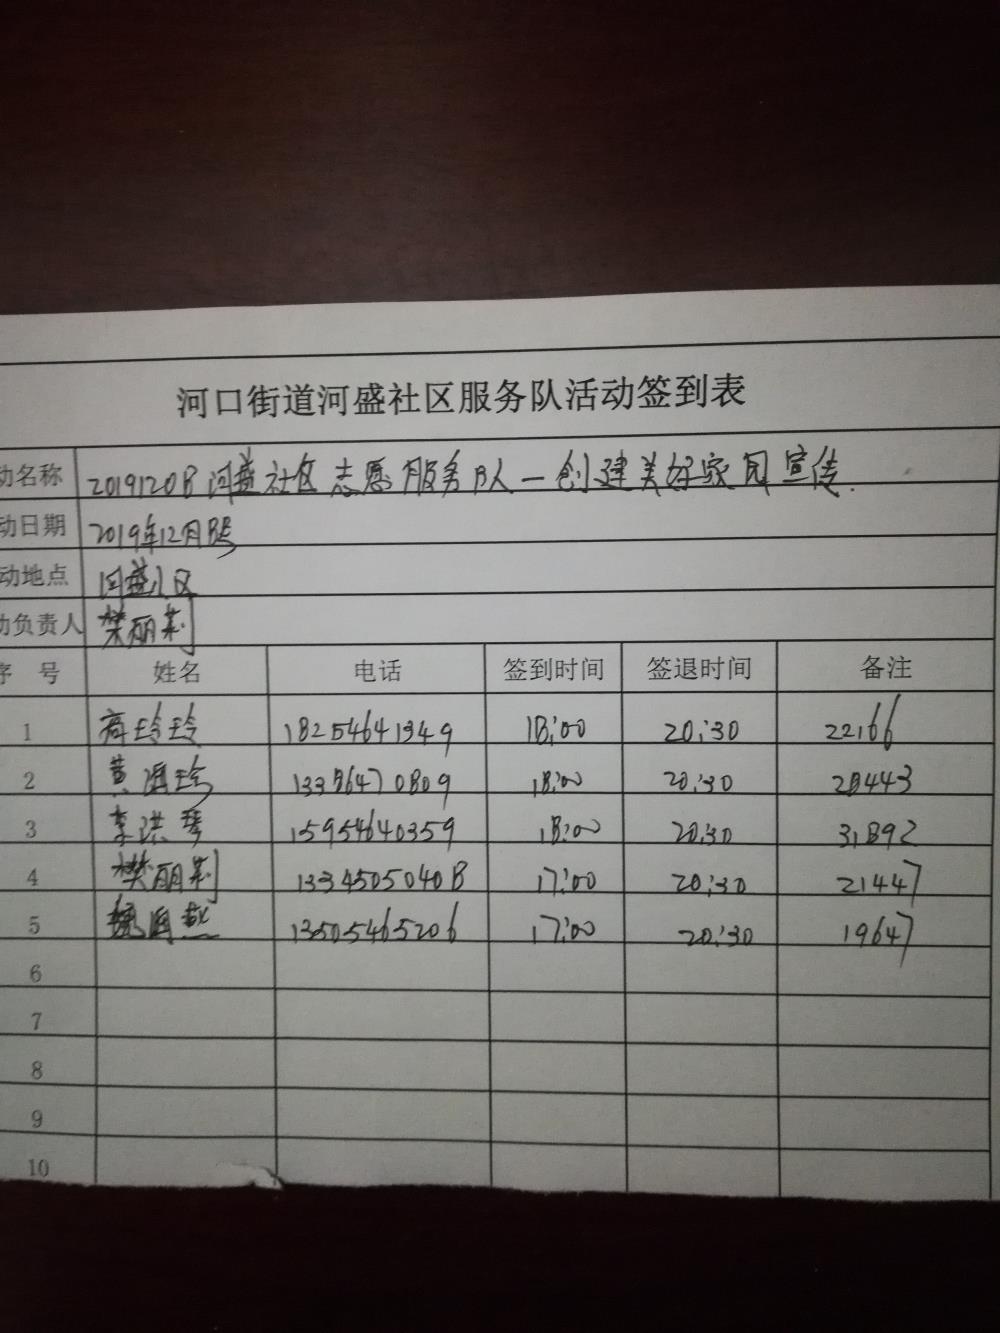 河口街道河盛社区服务队活动签到表
动名称 20191208河盛社区志愿服务队—创建美好家园宣传.
动日期 2019年12月8号
动地点 河盛小区
动负责人 樊丽莉
序 号 姓名 电话 签到时间 签退时间 备注
1 高玲玲 18254641349 18:00 20:30 22166
2 黄海玲 13386470809 18:00 20:30 28443
3 李洪琴 15954640359 18:00 20:30 31892
4 樊丽莉 13345050408 17:00 20:30 21447
5 13505465206 17:00 20:30 19647
6
7
8
9
10